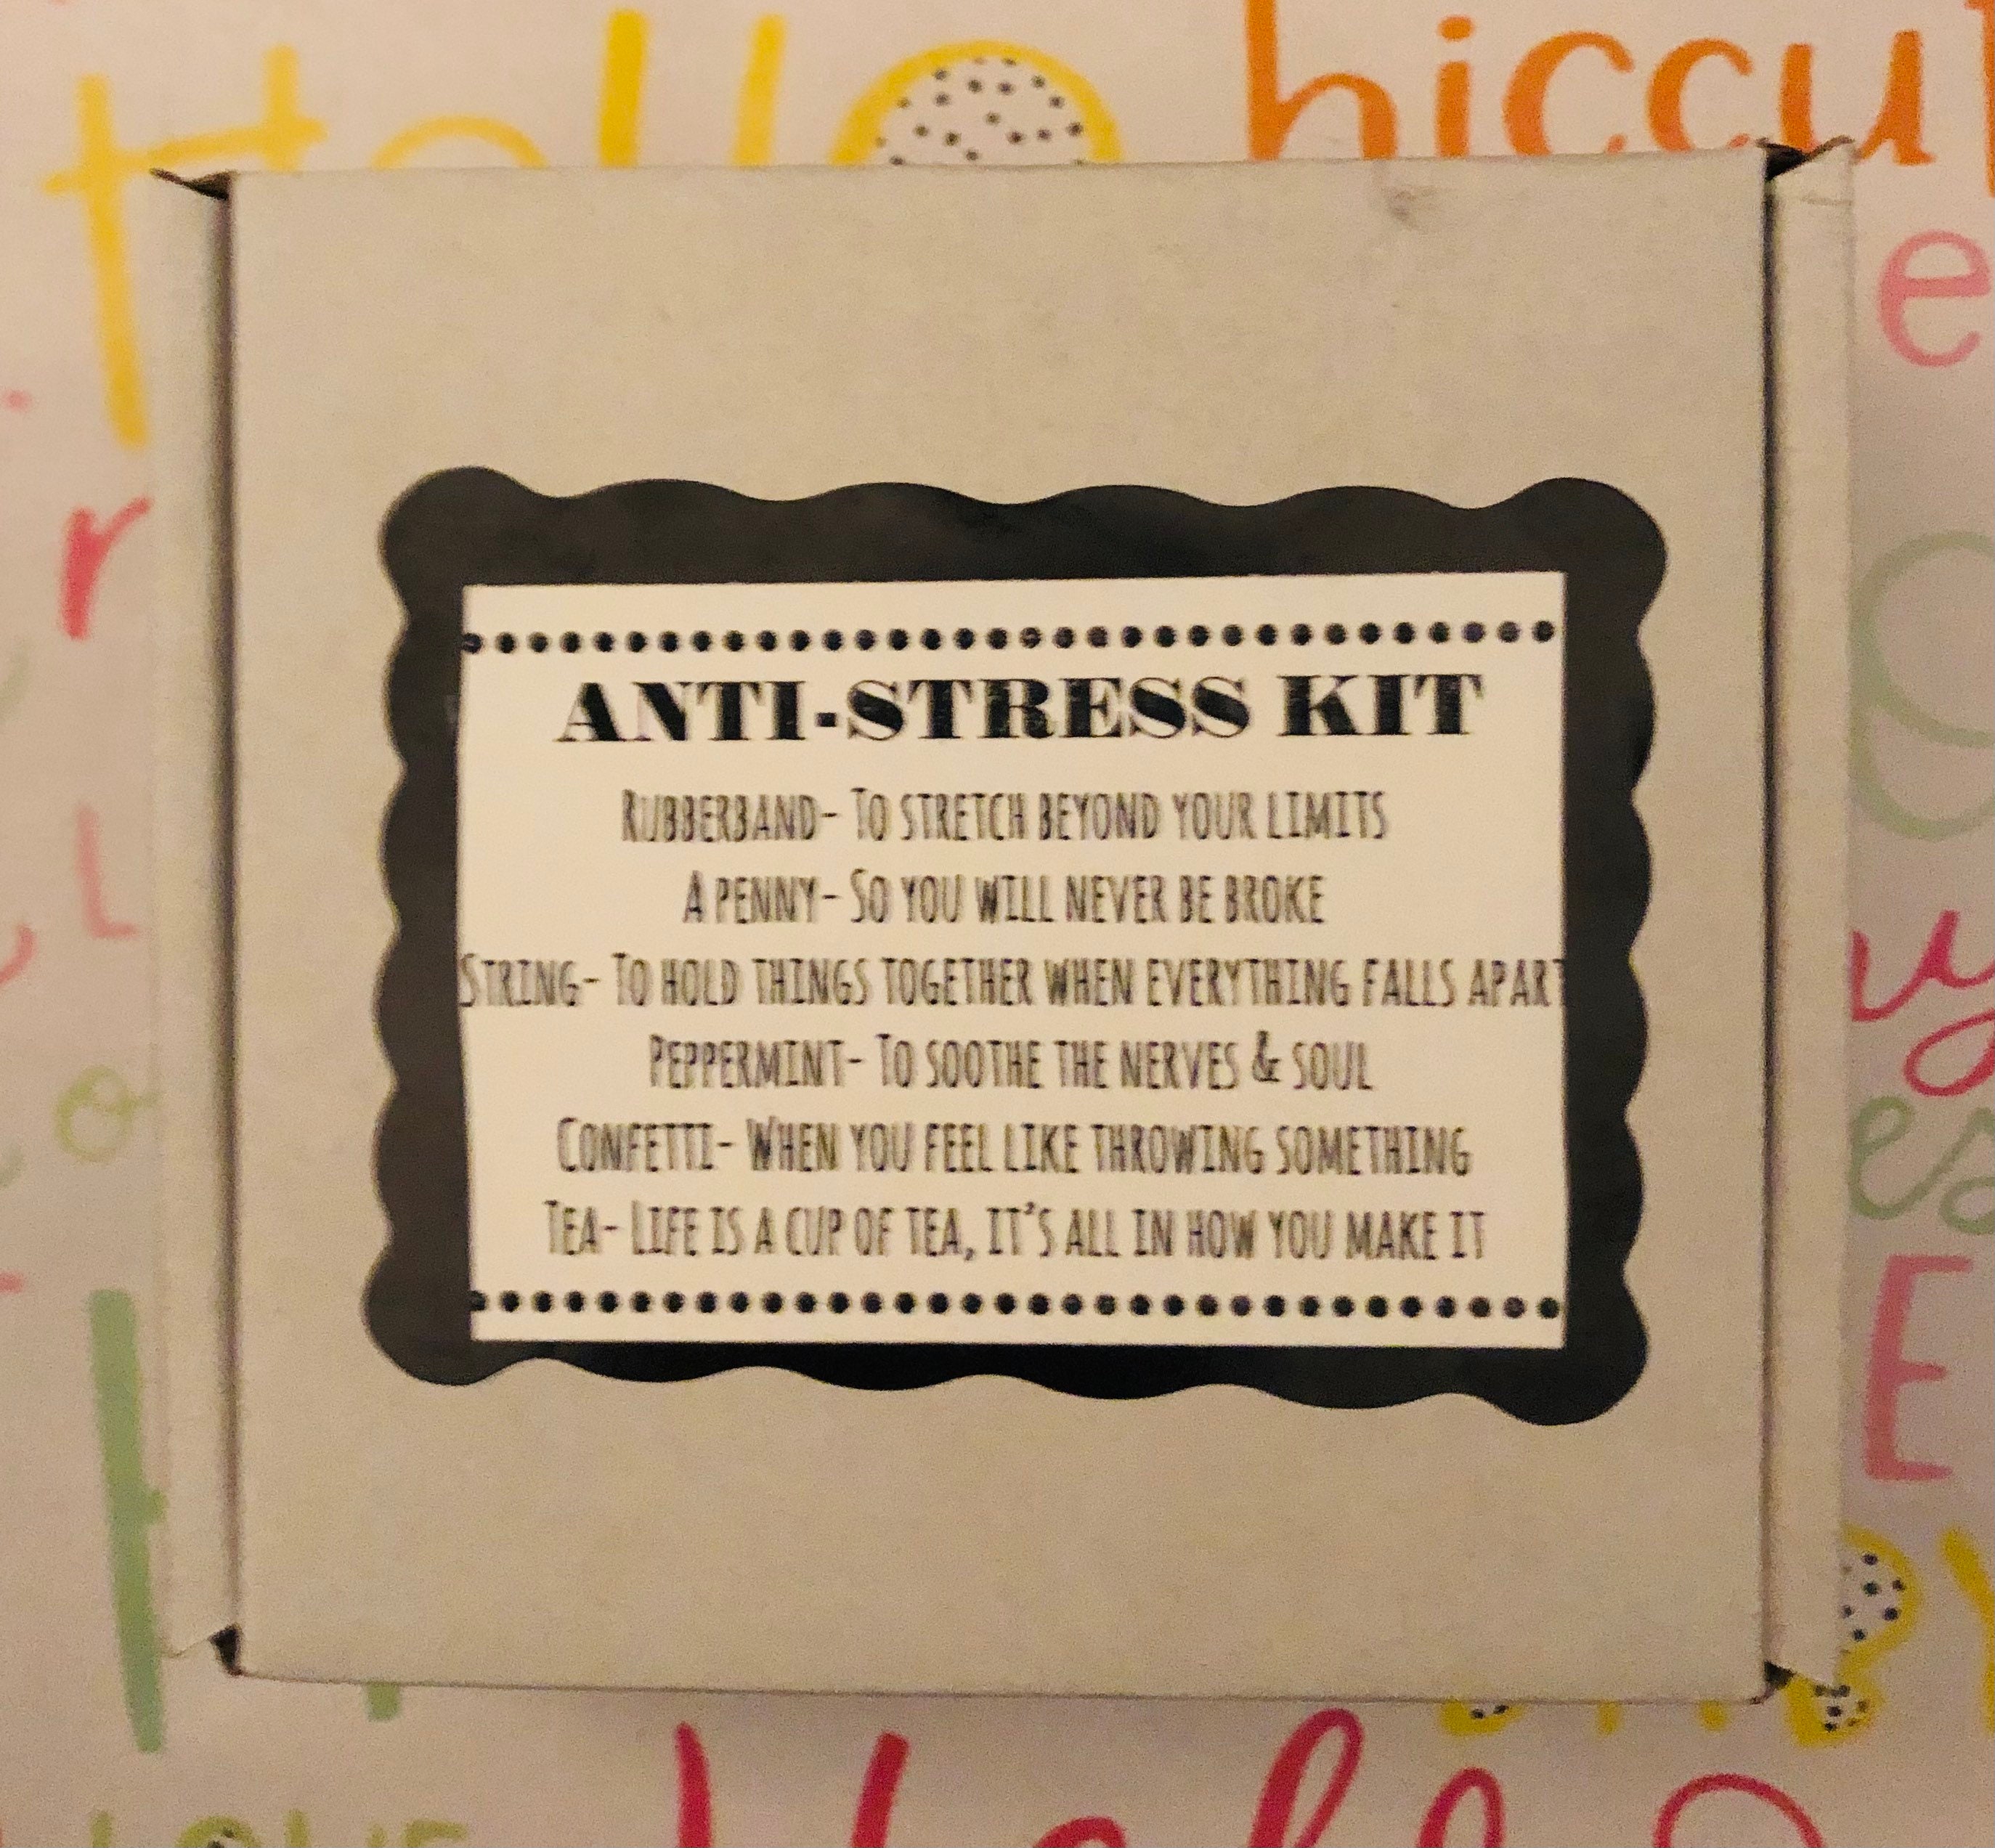 Hello hiccu
e
r
ANTI-STRESS KIT
RUBBERBAND- TO STRETCH BEYOND YOUR LIMITS
A PENNY- SO YOU WILL NEVER BE BROKE
STRING- TO HOLD THINGS TOGETHER WHEN EVERYTHING FALLS APART
PEPPERMINT- TO SOOTHE THE NERVES & SOUL
CONFETTI- WHEN YOU FEEL LIKE THROWING SOMETHING
TEA- LIFE IS A CUP OF TEA, IT'S ALL IN HOW YOU MAKE IT
y
es
E
LOVE